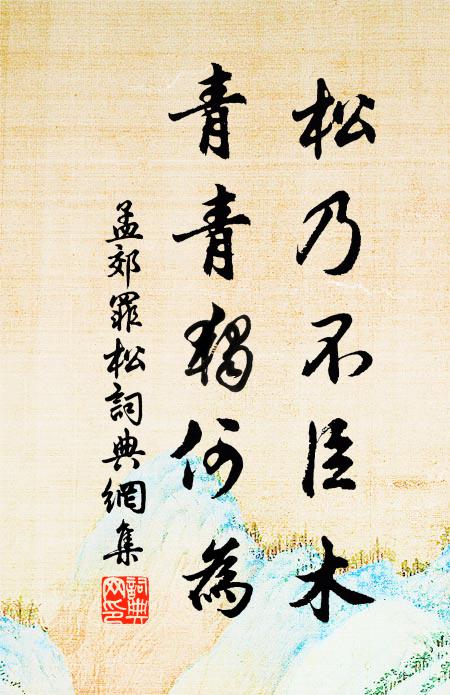 松乃不臣木
青青獨何為
孟郊罪松詞典網集